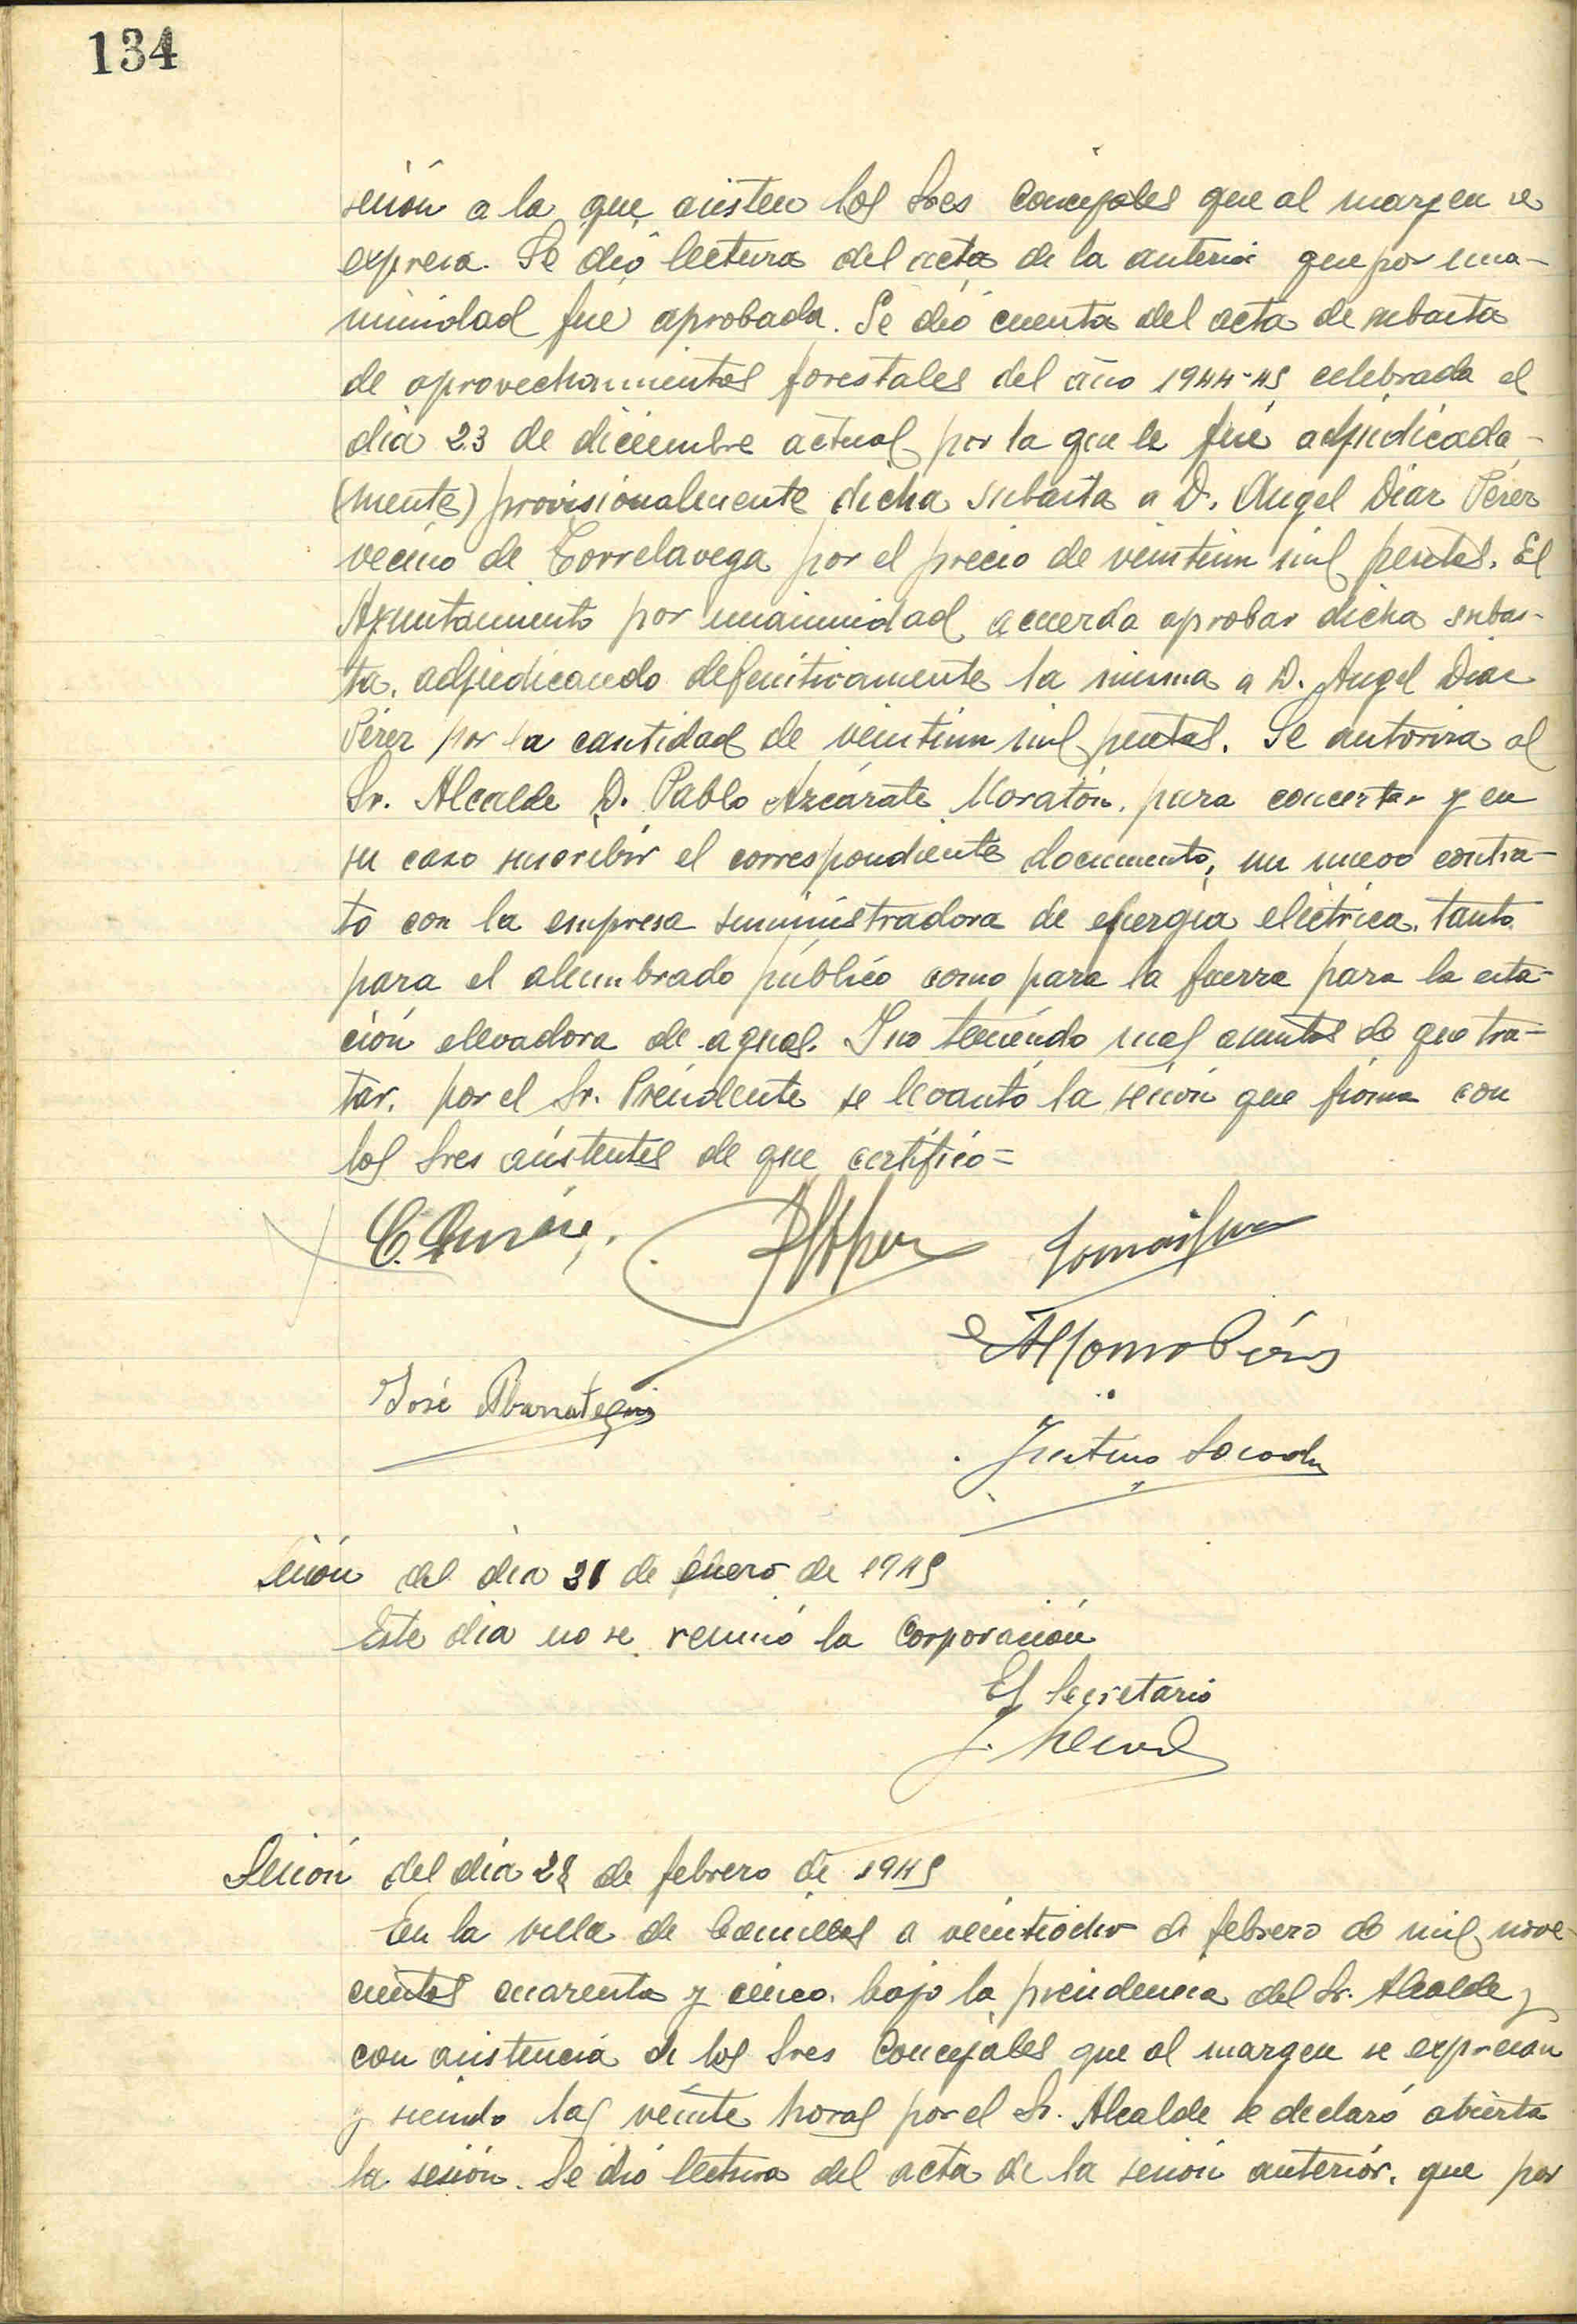 134
sesión a la que asisten los Sres Concejales que al margen se
expresa. Se dió lectura del acta de la anterior que por una-
nimidad fue aprobada. Se dió cuenta del acta de subasta
de aprovechamientos forestales del año 1944-45 celebrada el
dia 23 de diciembre actual por la que le fué adjudicada
(mente) provisionalmente dicha subasta a D. Angel Diaz Pérez
vecino de Torrelavega por el precio de veintiun mil pesetas. El
Ayuntamiento por unanimidad acuerda aprobar dicha subas-
ta, adjudicando definitivamente la misma a D. Angel Diaz
Pérez por la cantidad de veintiun mil pesetas. Se autoriza al
Sr. Alcalde D. Pablo Azcárate Moratón, para concertar y en
su caso suscribir el correspondiente documento, un nuevo contra-
to con la empresa suministradora de energia eléctrica, tanto
para el alumbrado público como para la fuerza para la esta-
ción elevadora de aguas. I no teniendo mas asuntos de que tra-
tar, por el Sr. Presidente se levantó la sesión que firma con
los Sres asistentes de que certifico=
José Abarrategui
Alfonso Pérez
Justino
Sesión del dia 31 de enero de 1945
Este dia no se reunió la Corporación
El Secretario
Sesión del dia 28 de febrero de 1945
En la villa de Comillas a veintiocho de febrero de mil nove-
cientos cuarenta y cinco, bajo la presidencia del Sr. Alcalde y
con asistencia de los Sres Concejales que al margen se expresan
y siendo las veinte horas por el Sr. Alcalde se declaró abierta
la sesión. Se dió lectura del acta de la sesión anterior, que por